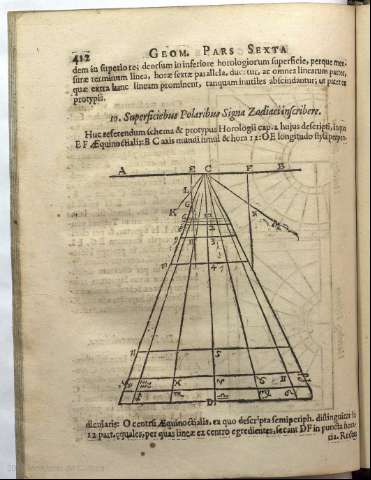 412 GEOM. PARS SEXTA
dem in superiore; deorsum in inferiore horologiorum superficie, per quæ men-
suræ terminum linea, horæ sextæ parallela, ducitur, ac omnes linearum partes,
quæ extra hanc lineam prominent, tanquam inutiles abscindantur; ut patet ex
protypis.
10. Superficiebus Polaribus Signa Zodiaci inscribere.
Huc referendum schema & protypus Horologii cap. 2 hujus descripti, in quo
E F Æquinoctialis: B C axis mundi
& hora 12: O E longitudo styli perpen-
A E C F B
L
K
G
M
1
2
3
4
5
D
dicularis: O centrũ Æquinoctialis, ex quo descripta semiperiph. distinguitur in
12 part. æquales, per quas lineæ ex centro egredientes, secant D F in puncta hora-
ria. Reseca